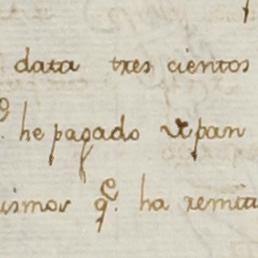 data tres cientos
he pagado
ismos q.e ha remiti